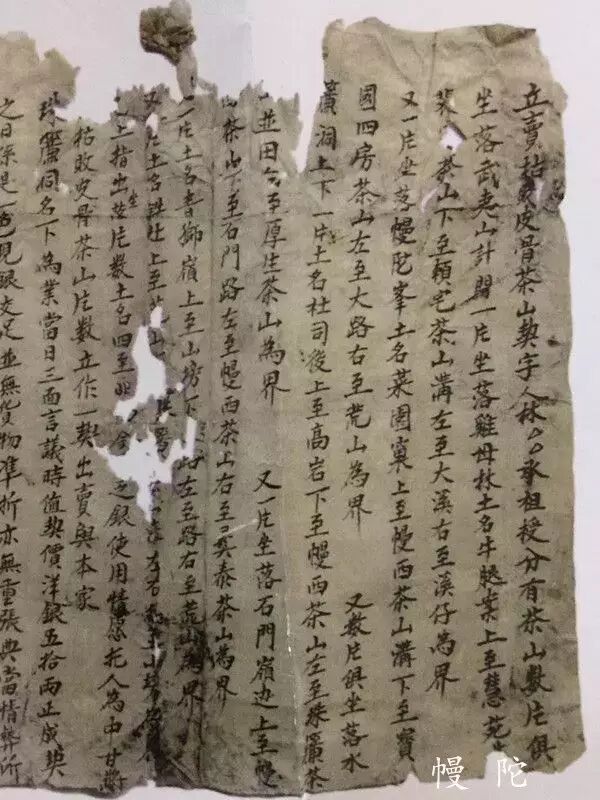 立賣枯皮骨茶山契字人林承祖授分有茶山數片俱
坐落武夷山計開一片坐落雞母林土名牛腿案上至慧苑
茶山下至賴宅茶山溝左至大溪右至溪仔為界
又一片坐落幔陀峯土名菜園窠上至幔西茶山溝下至寶
國四房茶山左至大路右至荒山為界 又數片俱坐落水
簾洞土下一片土名杜司後上至高岩下至幔西茶山左至珠簾茶
山並田右至厚生茶山為界 又一片坐落石門嶺边上至幔
茶山下至石門路左至幔西茶山右至泰茶山為界
一片土名青獅嶺上至山塝下 左至路右至荒山為界
又一片土名 上至
上指出茶片數土名四至 今 乏銀使用情愿托人為中甘將
枯敗皮骨茶山片數立作一契出賣與本家
珠簾侗名下為業當日三面言議時值契價洋銀五拾兩正成契
之日係是一色見銀交足並無貨物準折亦無重張典當情弊所
幔陀